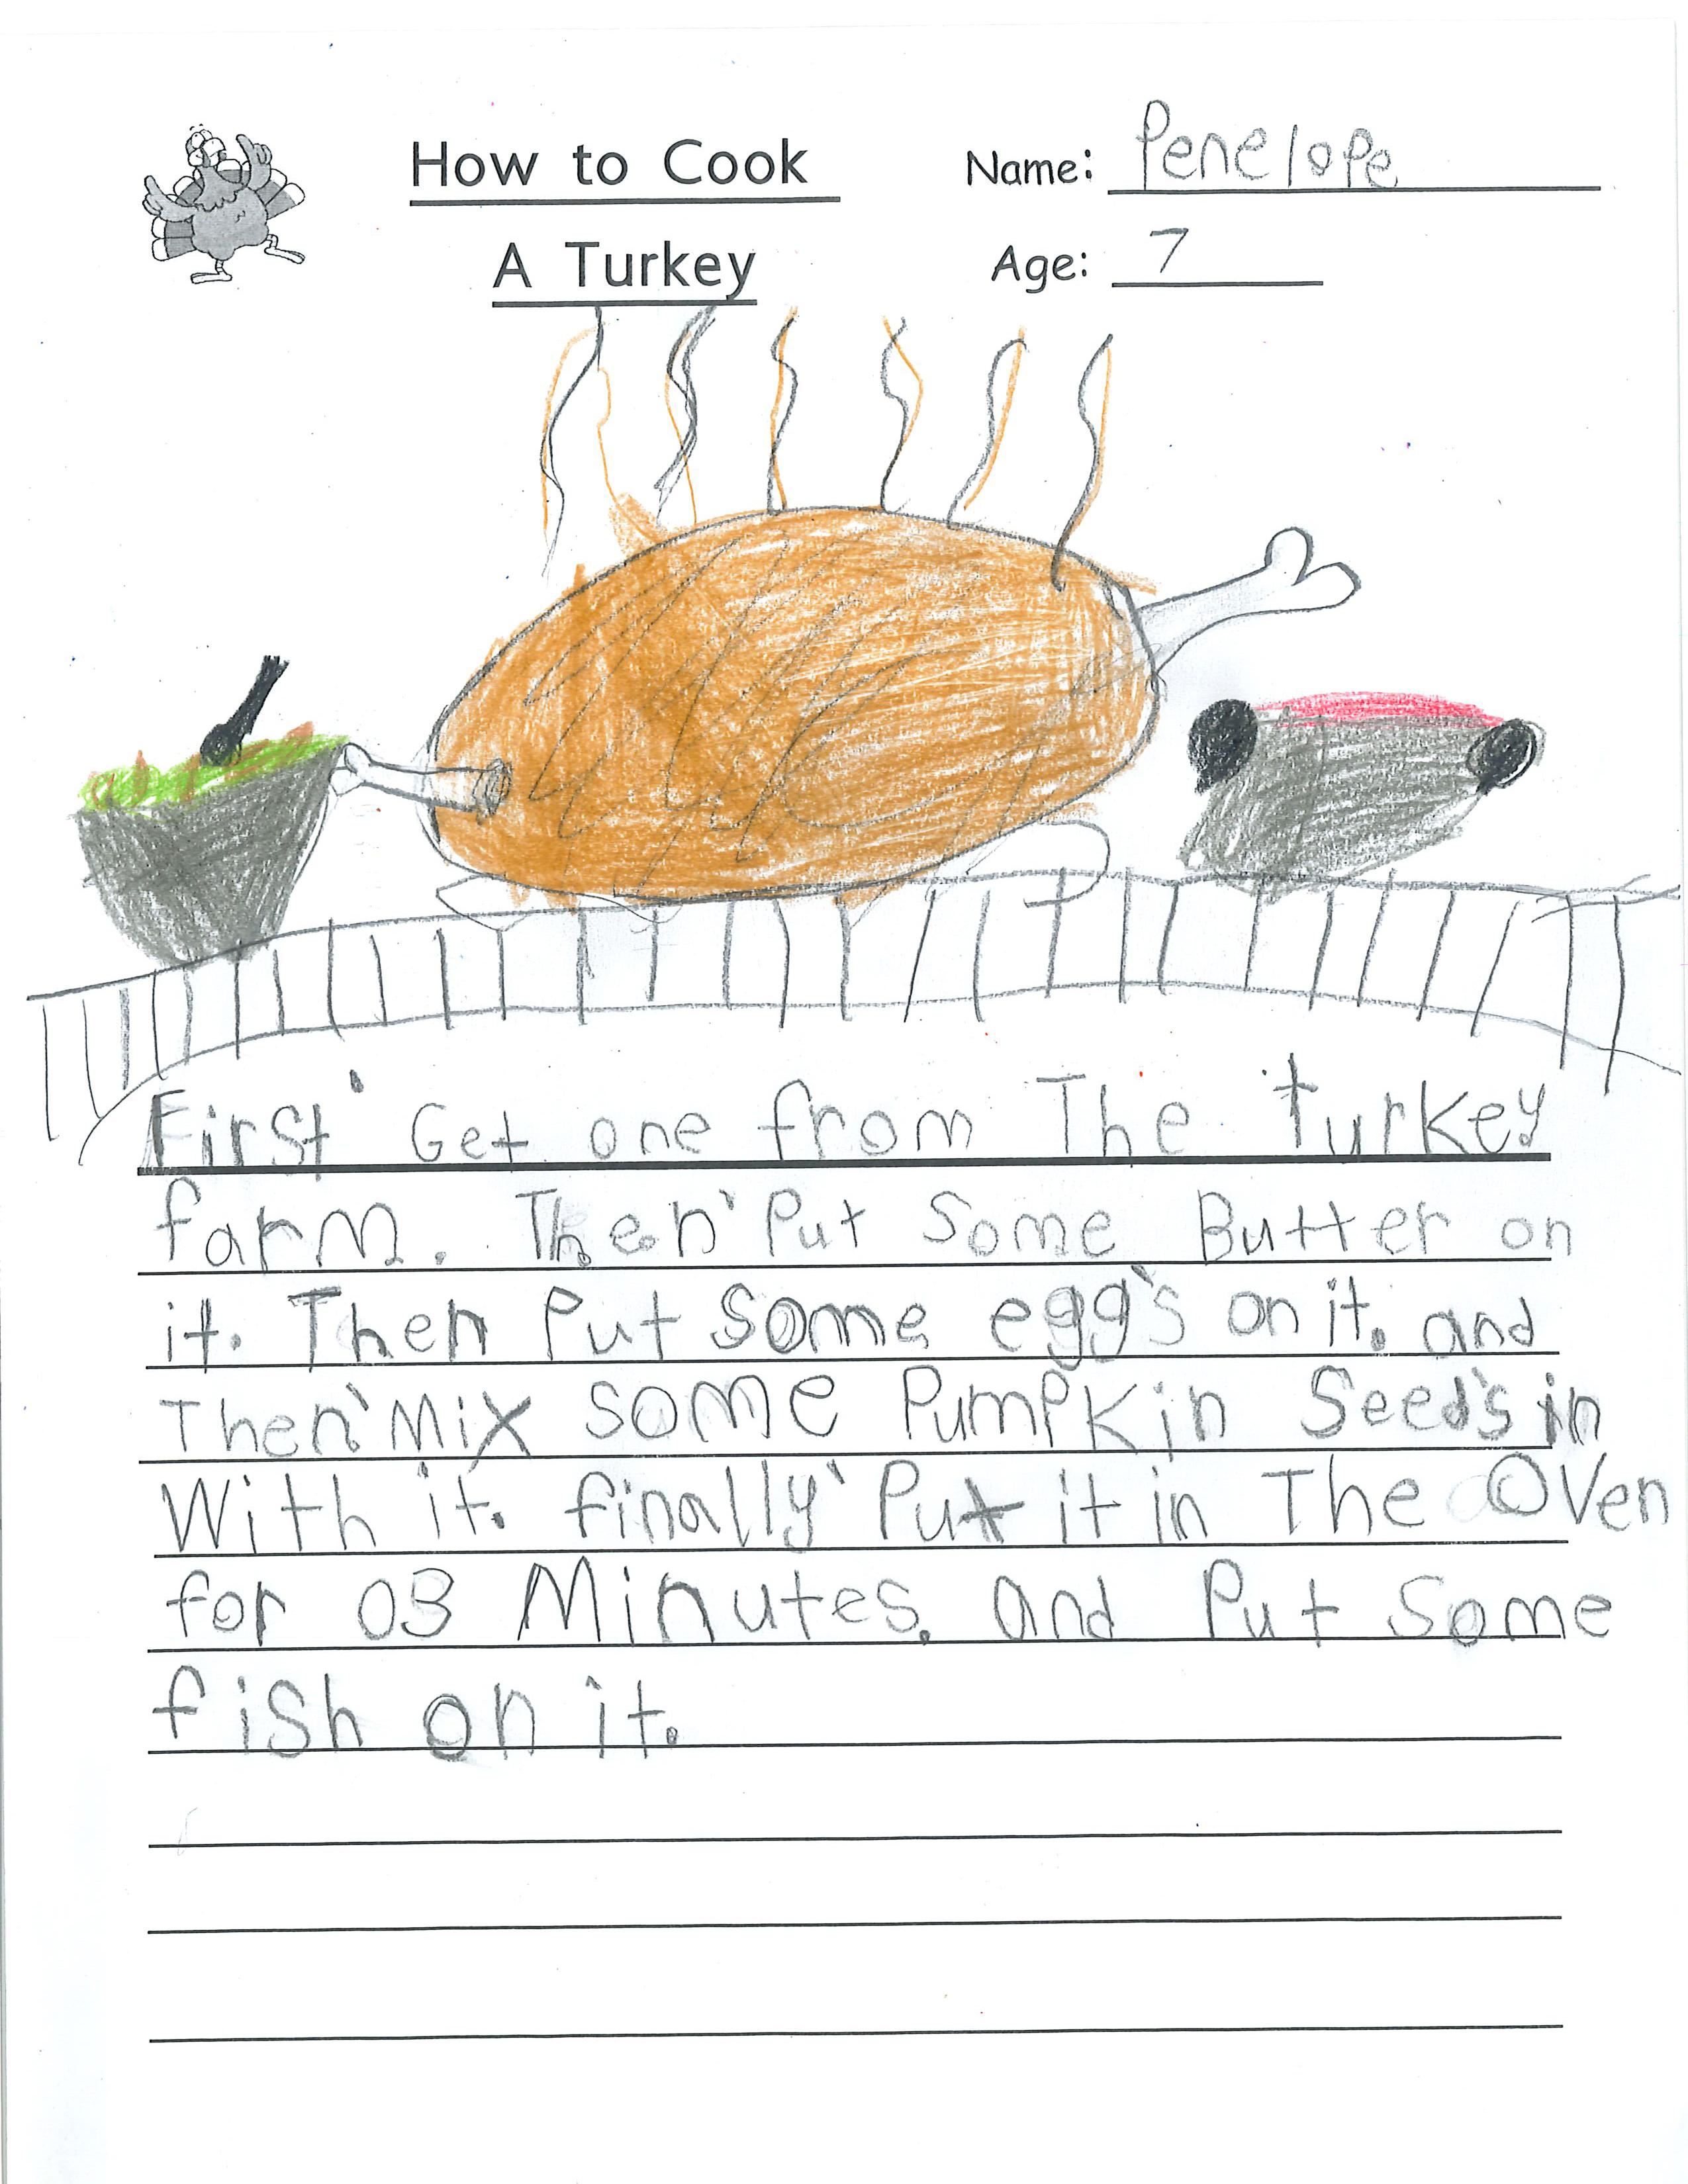 How to Cook
A Turkey
Name: Penelope
Age: 7
First' Get one from The turkey
farm. Then' Put Some Butter on
it. Then Put Some egg's on it. and
Then' Mix some PumPkin Seed's in
With it. finally' Put it in The Oven
for 03 Minutes. and Put Some
fish on it.